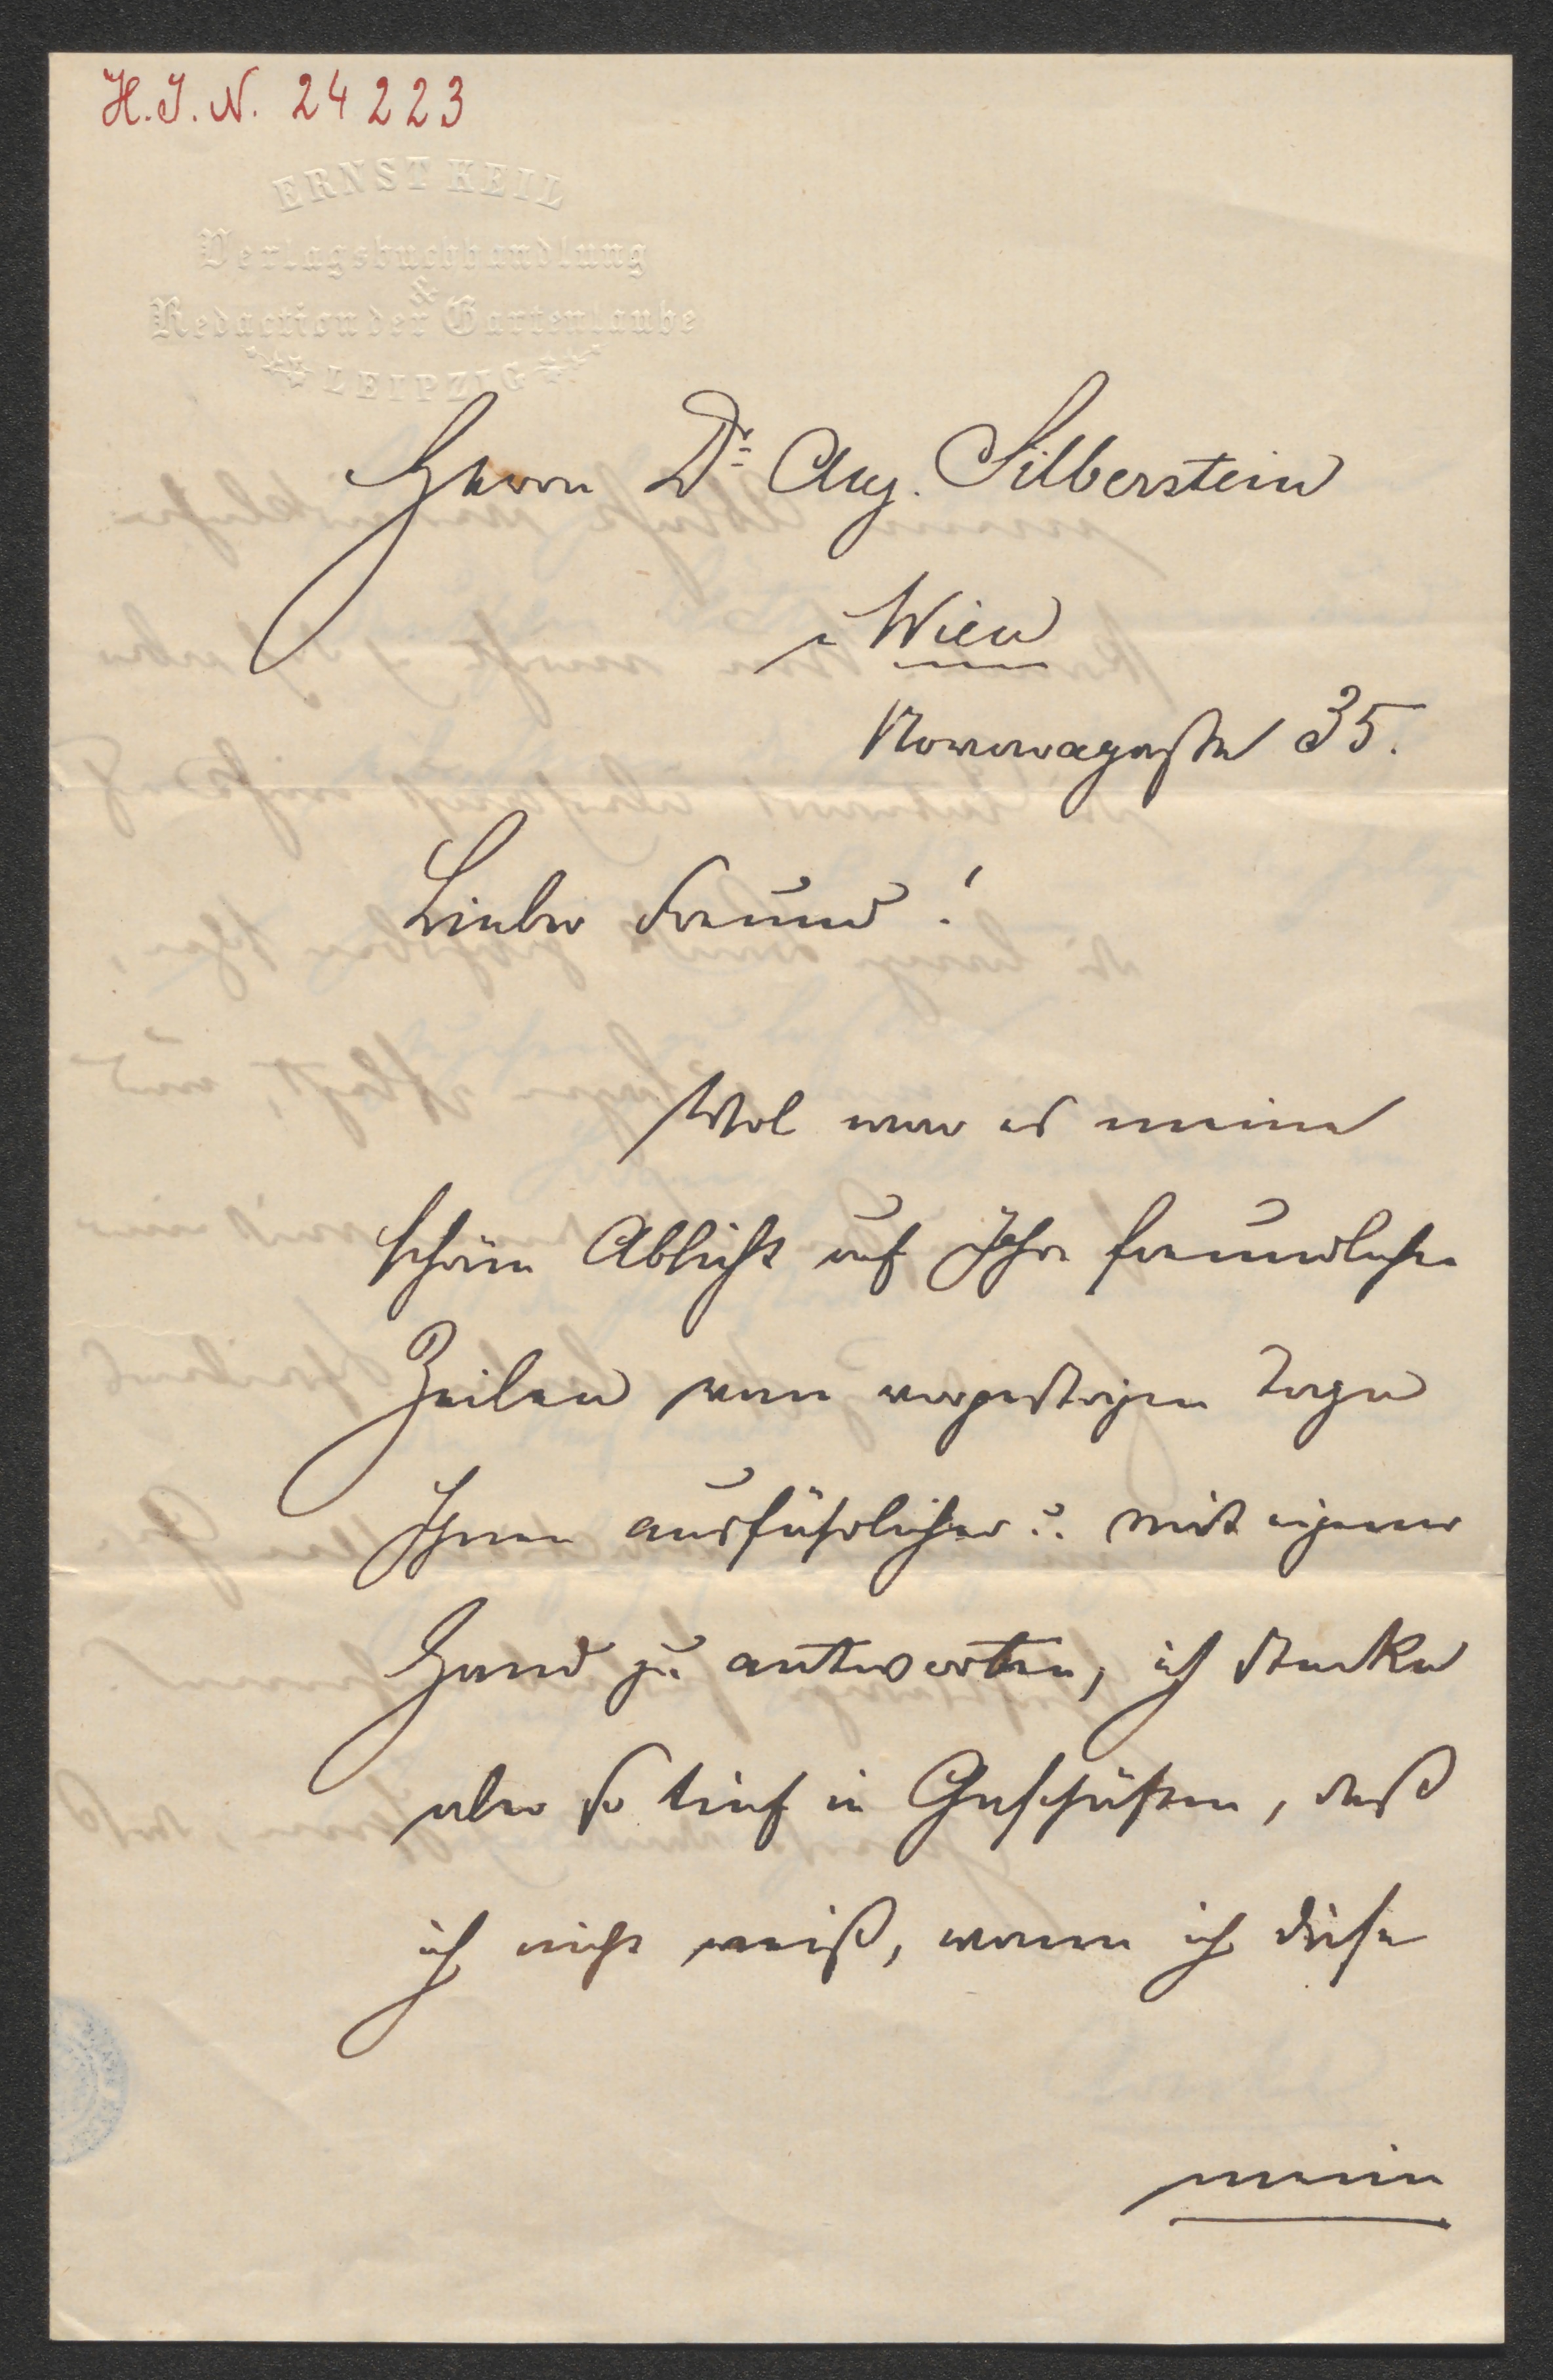 H.I.N. 24223
ERNST KEIL
Verlagsbuchhandlung
&
Redaction der Gartenlaube
LEIPZIG
Herrn Dr Aug. Silberstein
i Wien
Novaragasse 35.
Lieber Freund!
Wol war es meine
schöne Absicht auf Ihre freundlichen
Zeilen vom vorgestrigen Tage
Ihnen ausführlicher u. mit eigener
Hand zu antworten, ich stecke
aber so tief in Geschäften, daß
ich nicht weiß, wann ich diese
meine